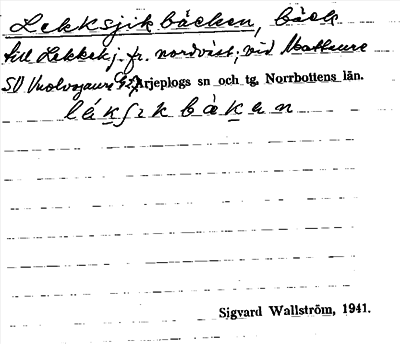 Lekksjikbäcken, bäck
till Lekksj. fr. nordväst, vid Mattaure
SV Vuolvojaure Arjeplogs sn och tg, Norrbottens län.
lákʃikbäkan
Sigvard Wallström, 1941.